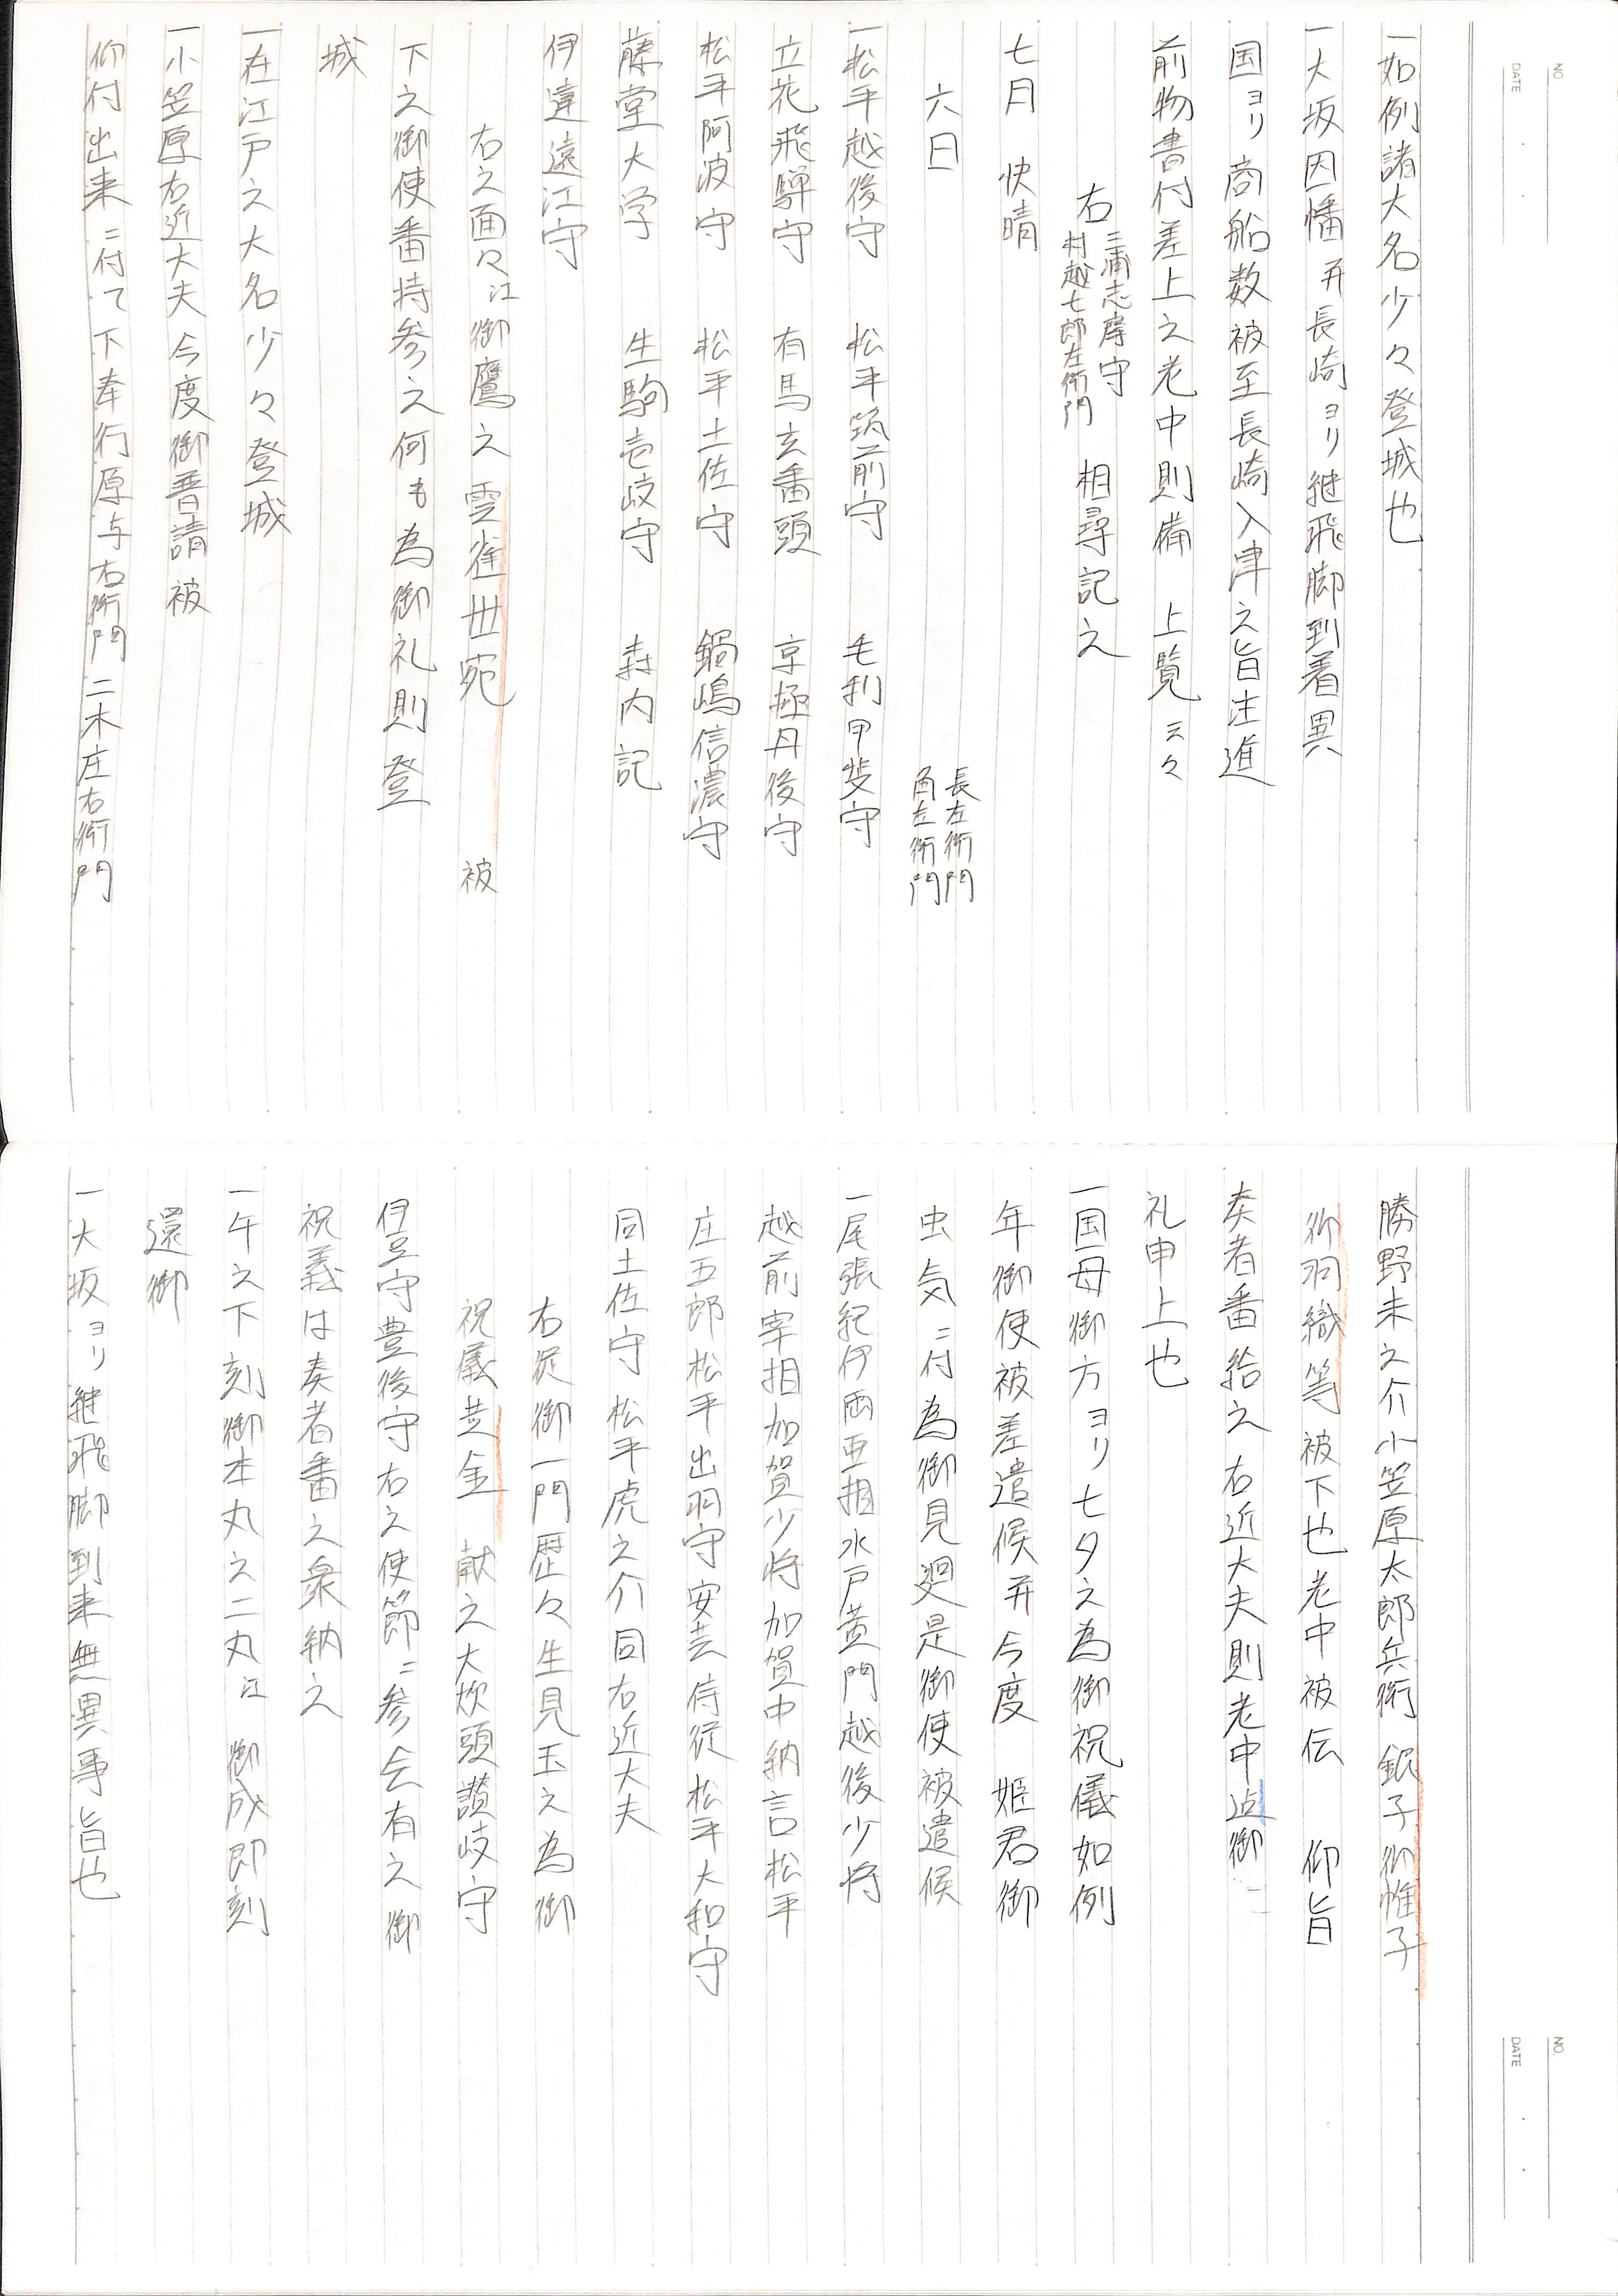 NO.
DATE
一如例諸大名少々登城也
一大坂因幡并長崎ヨリ継飛脚到着異
国ヨリ商船数被至長崎入津之旨注進
前物書付差上之老中則備　上覧云々
右 三浦志摩守 村越七郎左衛門 相尋記之
七月　快晴
六日　長左衛門 角左衛門
一松平越後守　松平筑前守　毛利甲斐守
立花飛騨守　有馬玄番頭　京極丹後守
松平阿波守　松平土佐守　鍋嶋信濃守
藤堂大学　生駒壱岐守　森内記
伊達遠江守
右之面々江御鷹之雲雀卅宛　被
下之御使番持参之何も為御礼則登
城
一在江戸之大名少々登城
一小笠原右近大夫今度御普請被
仰付出来ニ付て下奉行原与右衛門二木庄右衛門
NO.
DATE
勝野末之介小笠原太郎兵衛　銀子御帷子
御羽織等被下也老中被伝　仰旨
奏者番給之右近大夫則老中迄御
礼申上也
一国母御方ヨリ七夕之為御祝儀如例
年御使被差遣候并今度　姫君御
虫気ニ付為御見廻是御使被遣候
一尾張紀伊両亜相水戸黄門越後少将
越前宰相加賀少将加賀中納言松平
庄五郎松平出羽守安芸侍従松平大和守
同土佐守松平虎之介同右近大夫
右従御一門歴々生見玉之為御
祝儀黄金　献之大炊頭讃岐守
伊豆守豊後守右之使節ニ参会有之御
祝義は奏者番之衆納之
一午之下刻御本丸之二丸江　御成即刻
還御
一大坂ヨリ継飛脚到来無異事旨也